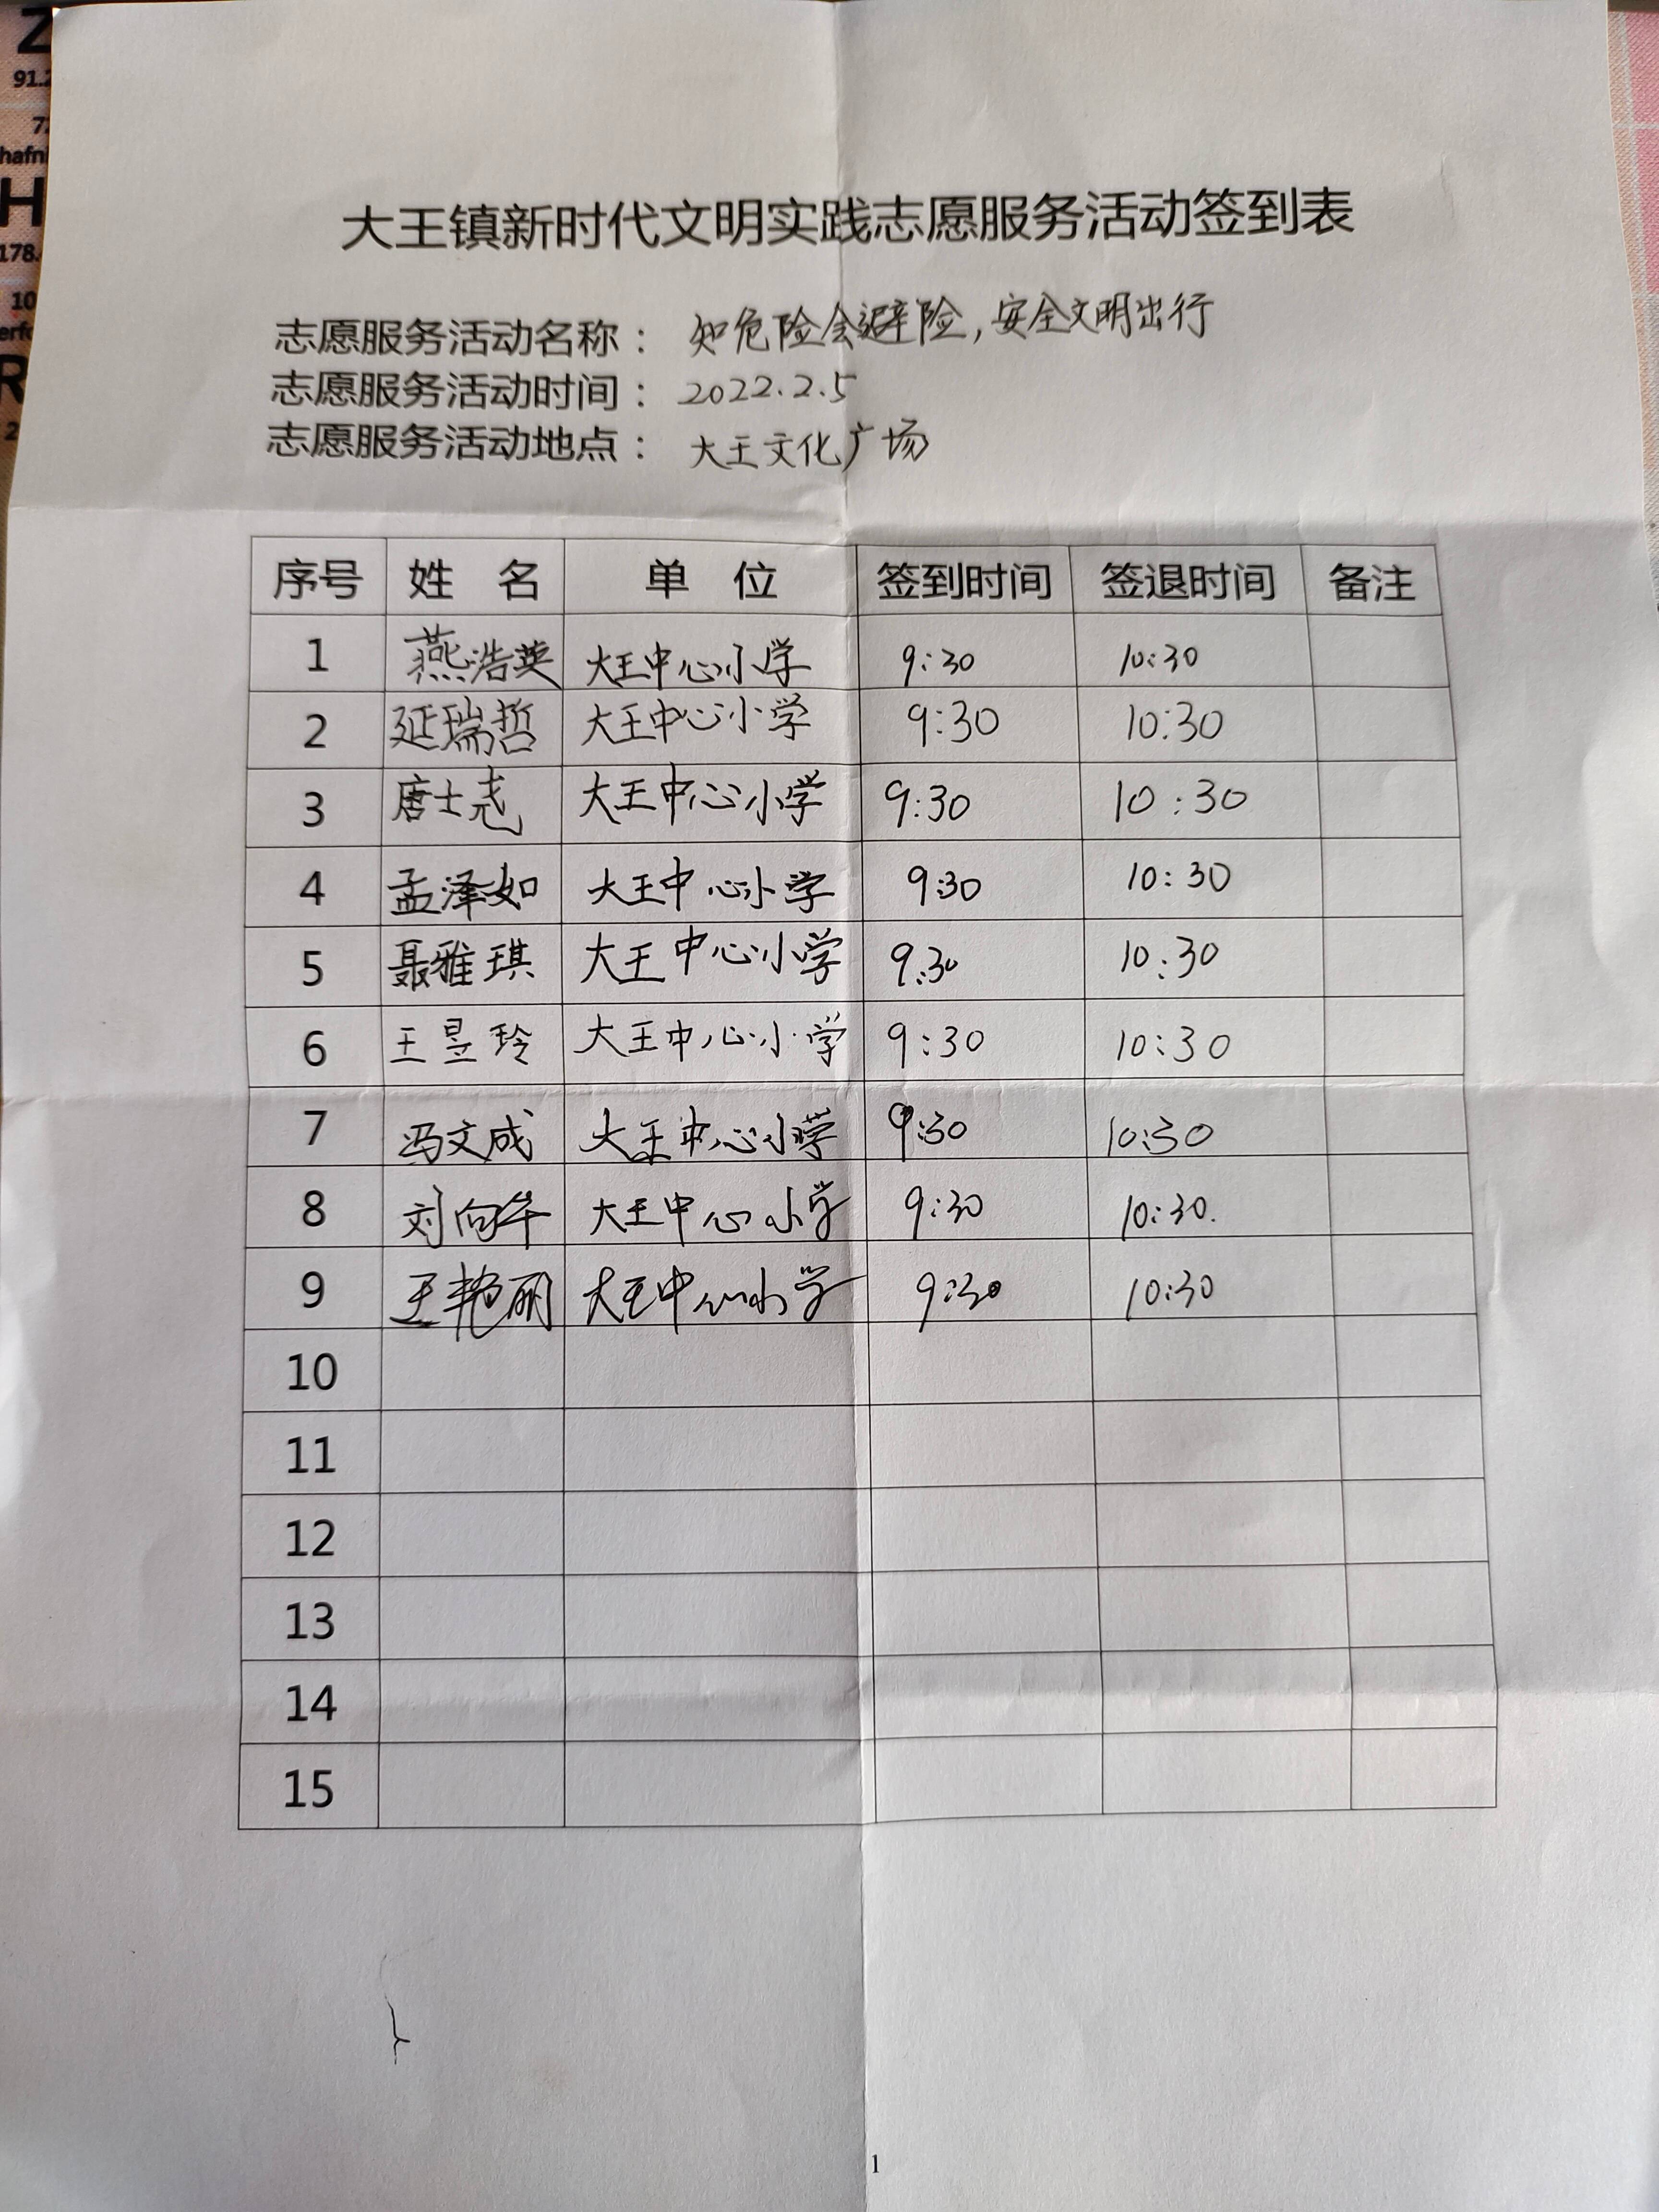 Z
91.2
72
hafni
H
178.
10
erfo
R
2
大王镇新时代文明实践志愿服务活动签到表
志愿服务活动名称： 知危险会避险，安全文明出行
志愿服务活动时间： 2022.2.5
志愿服务活动地点： 大王文化广场
序号 姓 名 单 位 签到时间 签退时间 备注
1 燕浩英 大王中心小学 9:30 10:30
2 延瑞哲 大王中心小学 9:30 10:30
3 唐士尧 大王中心小学 9:30 10:30
4 孟泽如 大王中心小学 9:30 10:30
5 聂雅琪 大王中心小学 9:30 10:30
6 王昱玲 大王中心小学 9:30 10:30
7 冯文成 大王中心小学 9:30 10:30
8 刘向华 大王中心小学 9:30 10:30.
9 王艳丽 大王中心小学 9:30 10:30
10
11
12
13
14
15
1